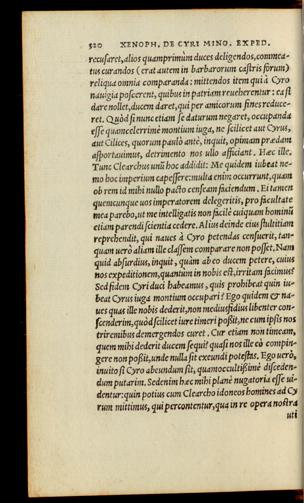 320 XENOPH. DE CYRI MINO. EXPED.
recusaret, alios quamprimùm duces deligendos, commea-
tus curandos (erat autem in barbarorum castris forum)
reliqua omnia comparanda: mittendos item qui à Cyro
nauigia poscerent, quibus in patriam reueherentur: ea si
dare nollet, ducem daret, qui per amicorum fines reduce-
ret. Quòd si nunc etiam se daturum negaret, occupanda
esse quamcelerrimè montium iuga, ne scilicet aut Cyrus,
aut Cilices, quorum paulò antè, inquit, opimam prædam
asportauimus, detrimento nos ullo afficiant. Hæc ille.
Tunc Clearchus unũ hoc addidit: Me quidem iubeat ne-
mo hoc imperium capesser: multa enim occurrunt, quam
ob rem id mihi nullo pacto censeam faciendum. Ei tamen
quemcunque uos imperatorem delegeritis, pro facultate
mea parebo, ut me intelligatis non facilè cuiquam hominũ
etiam parendi scientia cedere. Alius deinde eius stultitiam
reprehendit, qui naues à Cyro petendas censuerit, tan-
quam uerò aliam ille classem comparare non posset. Nam
quid absurdius, inquit, quàm ab eo ducem petere, cuius
nos expeditionem, quantum in nobis est, irritam facimus?
Sed fidem Cyri duci habeamus, quis prohibeat quin iu-
beat Cyrus iuga montium occupari? Ego quidem & na-
ues quas ille nobis dederit, non mediusfidius libenter con-
scenderim, quòd scilicet iure timeri possit, ne cum ipsis nos
triremibus demergendos curet. Cur etiam non timeam,
quem mihi dederit ducem sequi? quasi nos ille eò compin-
gere non possit, unde nulla sit exeundi potestas. Ego uerò,
inuito si Cyro abeundum sit, quamoccultißimè disceden-
dum putarim. Sed enim hæc mihi planè nugatoria esse ui-
dentur: quin potius cum Clearcho idoneos homines ad Cy
rum mittimus, qui percontentur, qua in re opera nostra
uti